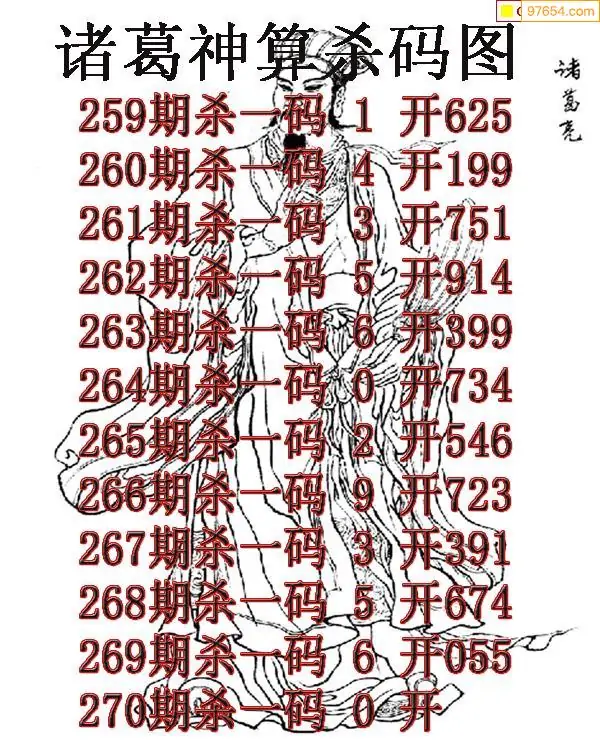 97654.com
诸葛神算杀码图
诸葛亮
259期杀一码 1 开625
260期杀一码 4 开199
261期杀一码 3 开751
262期杀一码 5 开914
263期杀一码 6 开399
264期杀一码 0 开734
265期杀一码 2 开546
266期杀一码 9 开723
267期杀一码 3 开391
268期杀一码 5 开674
269期杀一码 6 开055
270期杀一码 0 开